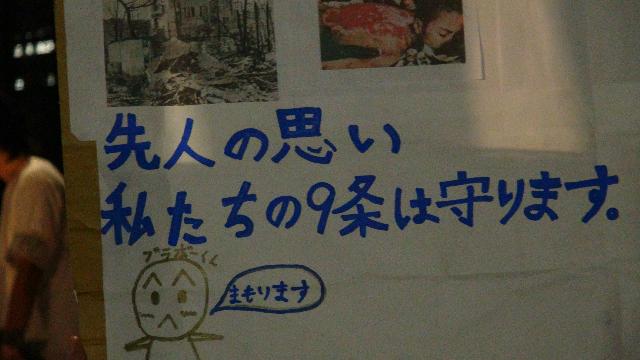 先人の思い
私たちの9条は守ります。
ブラボーくん
まもります